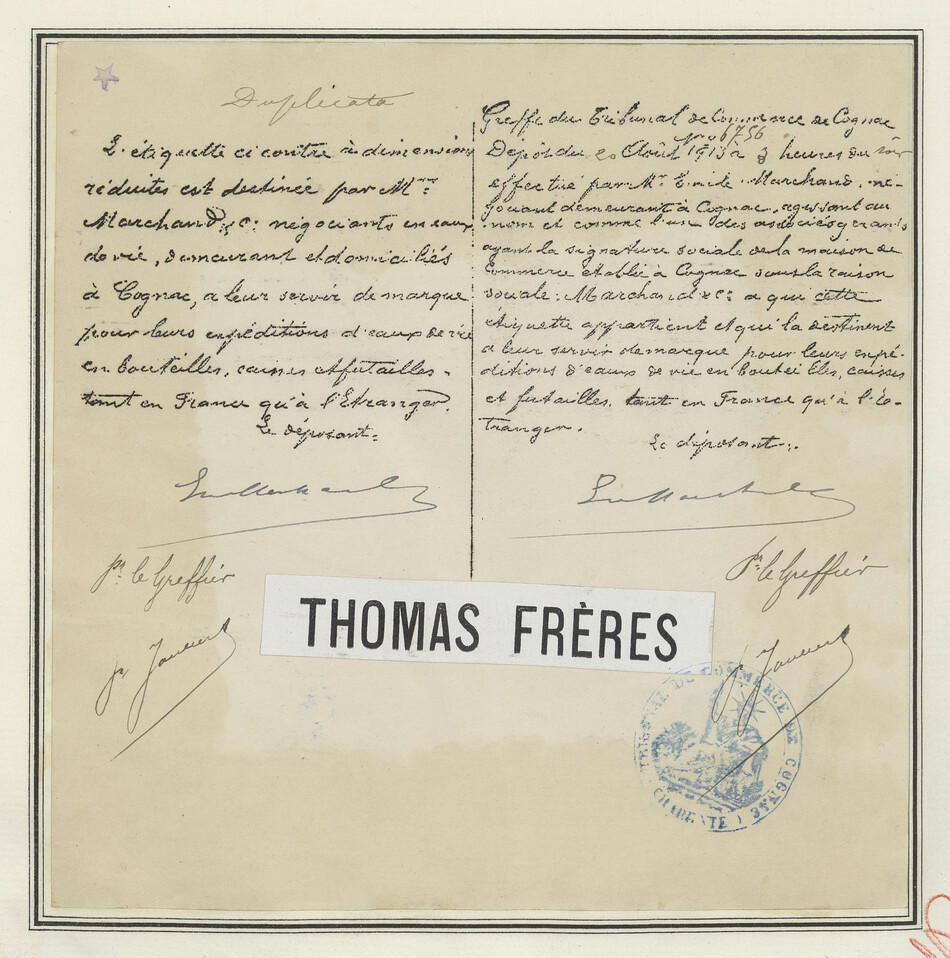 Duplicata
L'étiquette ci contre à dimensions
réduites est destinée par Mrs
Marchand & Cº négociants en eaux
de vie, demeurant et domiciliés
à Cognac, a leur servir de marque
pour leurs expéditions d'eaux de vie
en bouteilles, caisses et futailles
tant en France qu'à l'Etranger.
Le déposant:
Pr le Greffier
Greffe du Tribunal de Commerce de Cognac
No 6756
Dépôt du 20 Août 1913 à 3 heures du soir
effectué par Mr Emile Marchand, né-
gociant demeurant à Cognac, agissant au
nom et comme l'un des associés gérants
ayant la signature sociale de la maison de
Commerce établie à Cognac sous la raison
sociale: Marchand & Cº a qui cette
étiquette appartient et qui la destinent
a leur servir de marque pour leurs expé-
ditions d'eaux de vie en bouteilles, caisses
et futailles, tant en France qu'à l'É-
tranger.
Le déposant:
Pr le Greffier
THOMAS FRÈRES
TRIBUNAL DE COMMERCE DE COGNAC
(CHARENTE)